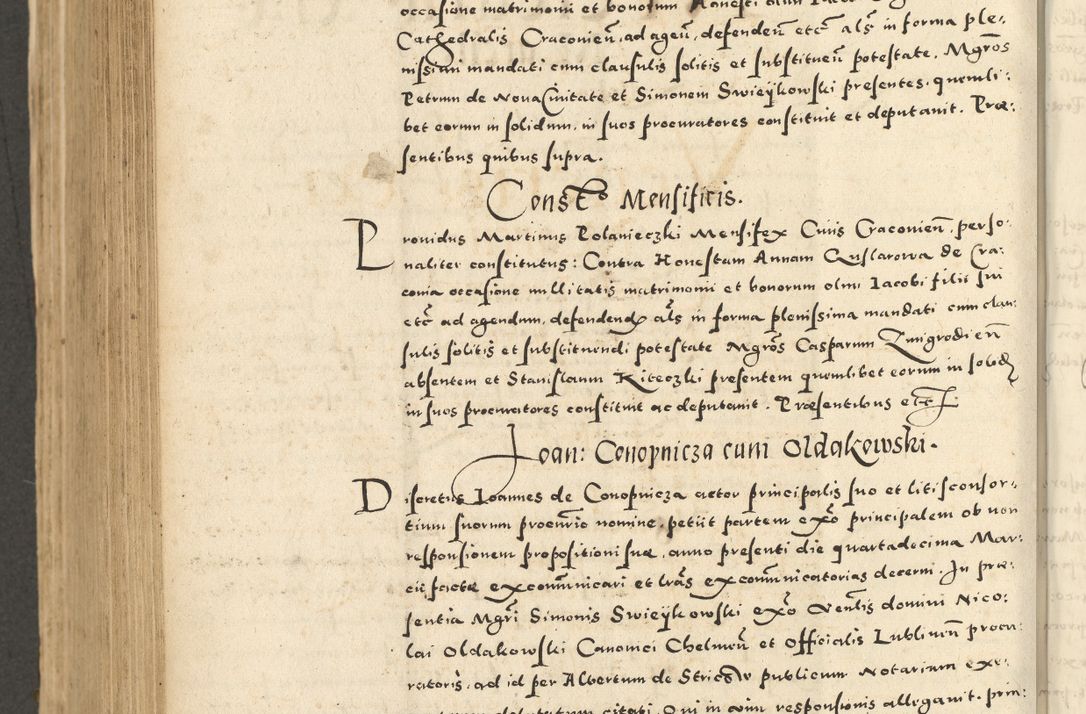 occasione matrimonii et bonorum Honesti olim
Cathedralis Craconien̄, ad agen̄, defenden̄ etc̄ al̄s in forma ple-
nissimi mandati cum clausulis solitis et substituen̄ potestate. Mgr̄os
Petrum de Nova Civitate et Simonem Swieÿkowski presentes, quemli:
bet eorum in solidum, in suos procuratores constituit et deputavit. Præ:
sentibus quibus supra.
Const̄o Mensificis.
Providus Martinus Polanieczki Mensifex Civis Craconien̄, perso-
naliter constitutus: Contra Honestam Annam Quslarowa de Cra:
covia occasione nullitatis matrimonii et bonorum olim Iacobi filii sui
etc̄ ad agendum, defenden̄ al̄s in forma plenissima mandati cum clau:
sulis solitis et substituendi potestate Mgr̄os Casparum Zmigrodien̄
absentem et Stanislaum Kiteczki presentem quemlibet eorum in solid
in suos procuratores constituit ac deputavit. Præsentibus etc̄
Ioan: Conopnicza cum Oldakowski.
Discretus Ioannes de Conopnicza actor principalis suo et litisconsor-
tium suorum procur̄io nomine, petiit partem ex̄o principalem ob non
responsionem propositioni suæ, anno presenti die quartadecima Mar:
cii factæ excom̄unicari et lr̄as excom̄unicatorias decerni. In præ:
sentia Mgr̄i Simonis Swieÿkowski ex̄o Ven̄lis domini Nico:
lai Oldakowski Canonici Chelmen̄ et Officialis Lublinen̄ procu:
ratoris, ad id per Albertum de publicum Notarium exe:
citati. Qui in responsionis allegavit, prin: